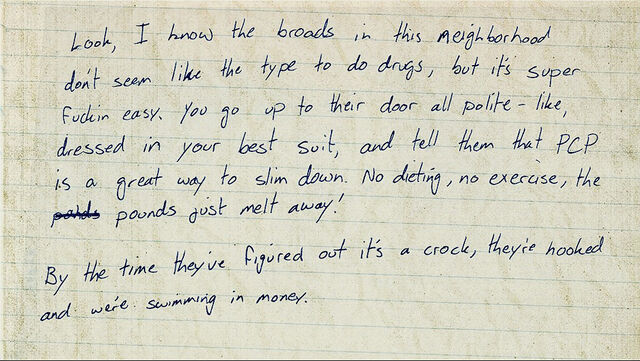 Look, I know the broads in this neighborhood
don't seem like the type to do drugs, but it's super
fuckin easy. You go up to their door all polite-like,
dressed in your best suit, and tell them that PCP
is a great way to slim down. No dieting, no exercise, the
pounds just melt away!
By the time they've figured out it's a crock, they're hooked
and we're swimming in money.